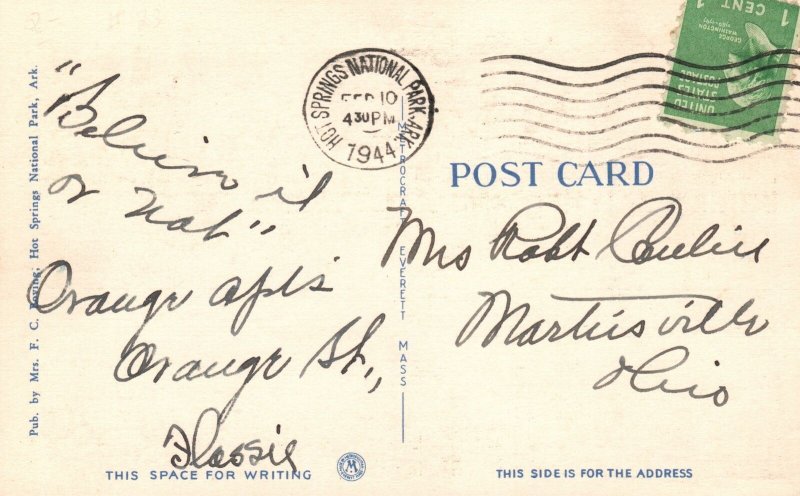 "Believe it
or Not"
Orange apts
Orange St.,
Flossie
THIS SPACE FOR WRITING
Pub. by Mrs. F. C. Hot Springs National Park, Ark.
METROCRAFT EVERETT MASS
HOT SPRINGS NATIONAL PARK, ARK.
FEB 10
4 30 PM
1944
1 CENT 1
GEORGE
WASHINGTON
1789-1797
UNITED
STATES
POSTAGE
POST CARD
Mrs Robt
Martinsville
Ohio
THIS SIDE IS FOR THE ADDRESS